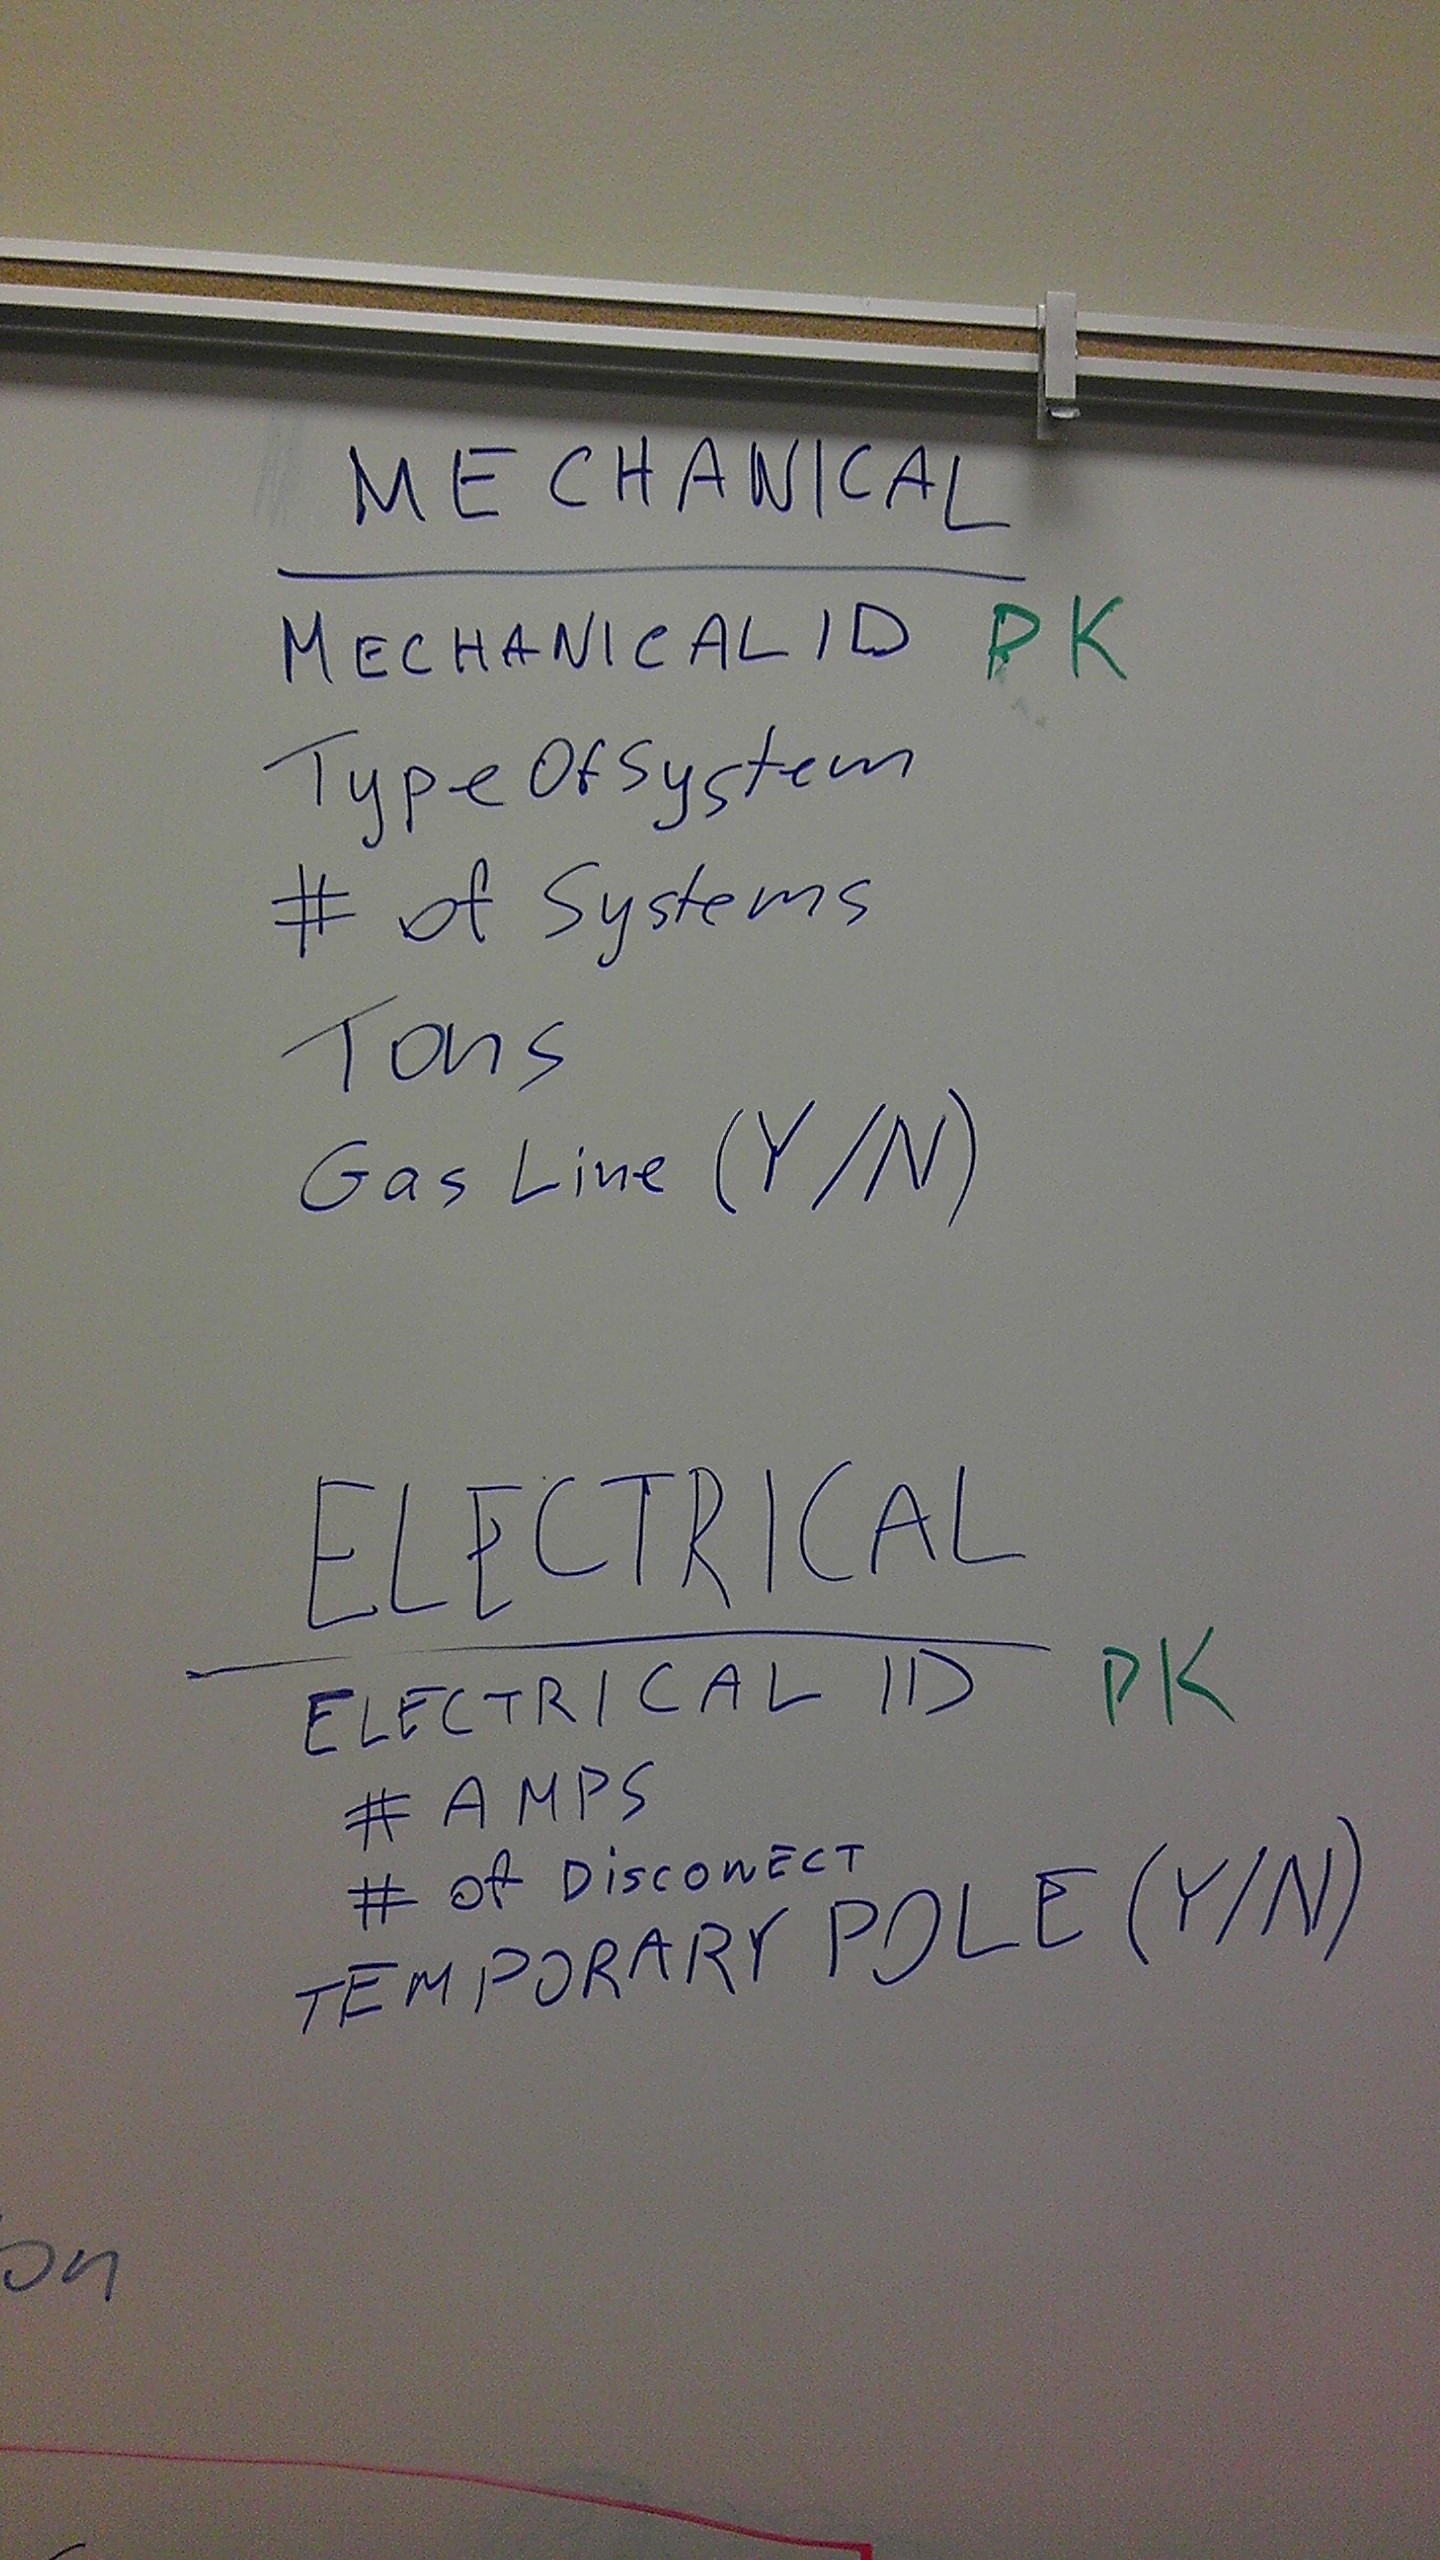 MECHANICAL
MECHANICAL ID PK
Type Of System
# of Systems
Tons
Gas Line (Y/N)
ELECTRICAL
ELECTRICAL ID PK
# AMPS
# of DISCONECT
TEMPORARY POLE (Y/N)
on